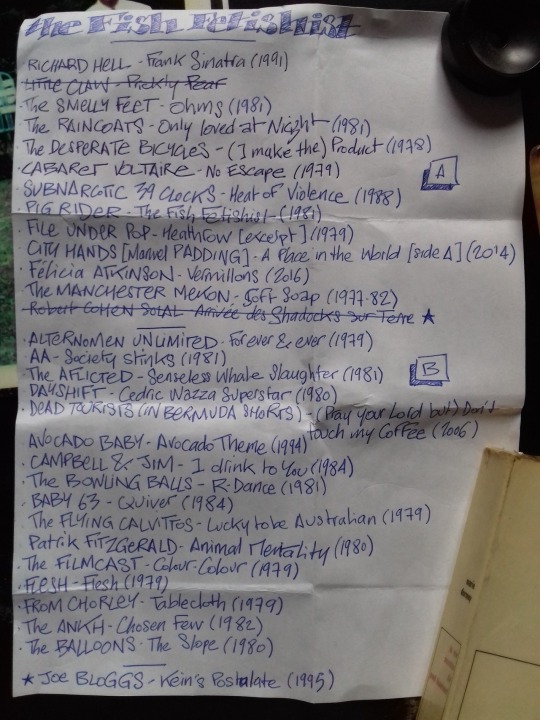 the Fish Fetishist
· RICHARD HELL - Frank Sinatra (1991)
LITTLE CLAW - Prickly Pear
· The SMELLY FEET - Ohms (1981)
· The RAINCOATS - Only loved at Night (1981)
· The DESPERATE BICYCLES - (I make the) Product (1978)
· CABARET VOLTAIRE - No Escape (1979)
A
· SUBNARCOTIC 39 CLOCKS - Heat of Violence (1988)
· PIG RIDER - The Fish Fetishist - (1981)
· FILE UNDER POP - Heathrow [excerpt] (1979)
· CITY HANDS [Marvel PADDING] - A Place in the World [side A] (2014)
· Félicia ATKINSON - Vermillons (2016)
· The MANCHESTER MEKON - Soft Soap (1977-82)
· Robert COHEN SOLAL - Arrivée des Shadocks sur Terre ★
· ALTERNOMEN UNLIMITED - Forever & ever (1979)
· AA - Society stinks (1981)
· The AFLICTED - Senseless Whale Slaughter (1981)
B
· DAYSHIFT - Cedric Wazza Superstar (1980)
· DEAD TOURISTS (IN BERMUDA SHORTS) - (Pray your Lord but) Don't
touch my Coffee (2006)
AVOCADO BABY - Avocado Theme (1994)
· CAMPBELL & JIM - I drink to You (1984)
· The BOWLING BALLS - R. Dance (1981)
· BABY 63 - Quiver (1984)
· The FLYING CALVITTOS - Lucky to be Australian (1979)
Patrik FITZGERALD - Animal Mentality (1980)
· The FILMCAST - Colour-Colour (1979)
· FLESH - Flesh (1979)
· FROM CHORLEY - Tablecloth (1979)
· The ANKH - Chosen Few (1982)
· The BALLOONS - The Slope (1980)
★ JOE BLOGGS - Kein's Postulate (1995)